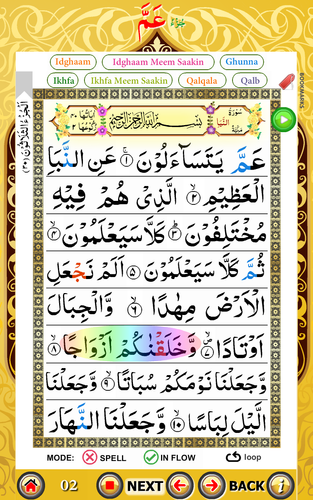 عَمَّ
Idghaam Idghaam Meem Saakin Ghunna
Ikhfa Ikhfa Meem Saakin Qalqala Qalb
BOOKMARKS
بِسْمِ اللّٰهِ الرَّحْمٰنِ الرَّحِيْمِ
عَمَّ يَتَسَآءَلُوْنَ ۝١ عَنِ النَّبَاِ
الْعَظِيْمِ ۝٢ الَّذِىْ هُمْ فِيْهِ
مُخْتَلِفُوْنَ ۝٣ كَلَّا سَيَعْلَمُوْنَ ۝٤
ثُمَّ كَلَّا سَيَعْلَمُوْنَ ۝٥ اَلَمْ نَجْعَلِ
الْاَرْضَ مِهٰدًا ۝٦ وَّالْجِبَالَ
اَوْتَادًا ۝٧ وَّخَلَقْنٰكُمْ اَزْوَاجًا ۝٨
وَّجَعَلْنَا نَوْمَكُمْ سُبَاتًا ۝٩ وَّجَعَلْنَا
الَّيْلَ لِبَاسًا ۝١٠ وَّجَعَلْنَا النَّهَارَ
MODE: SPELL IN FLOW loop
02 NEXT BACK i